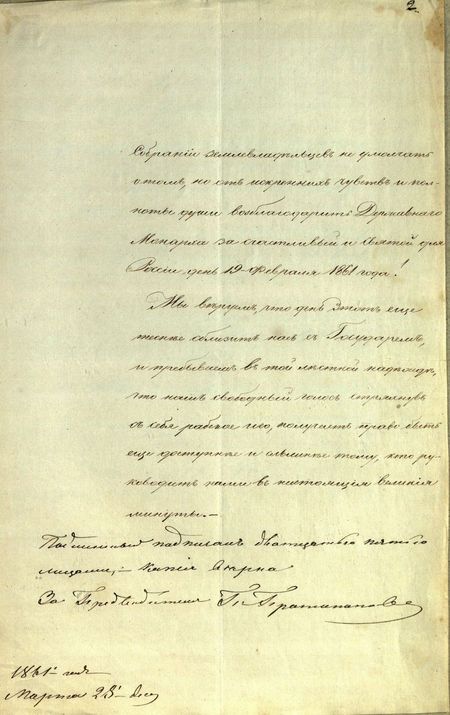 2
Собраніи землевладѣльцевъ не умолчать
о томъ, но отъ искреннихъ чувствъ и пол-
ноты души возблагодарить Державнаго
Монарха за счастливый и святой для
Росіи день 19 Февраля 1861 года!
Мы вѣруемъ, что день этотъ еще
тѣснѣе сблизитъ насъ съ Государемъ,
и пребываемъ въ той лестной надеждѣ,
что нашъ свободный голосъ стряхнувъ
съ себя рабское иго, получаетъ право быть
еще доступнѣе и слышнѣе тому, кто ру-
ководитъ нами въ настоящія великія
минуты.—
Подлинный подписанъ двадцатью пятью
лицами,— Копія вѣрна
За Предводителя
1861 года
Марта 23 дня